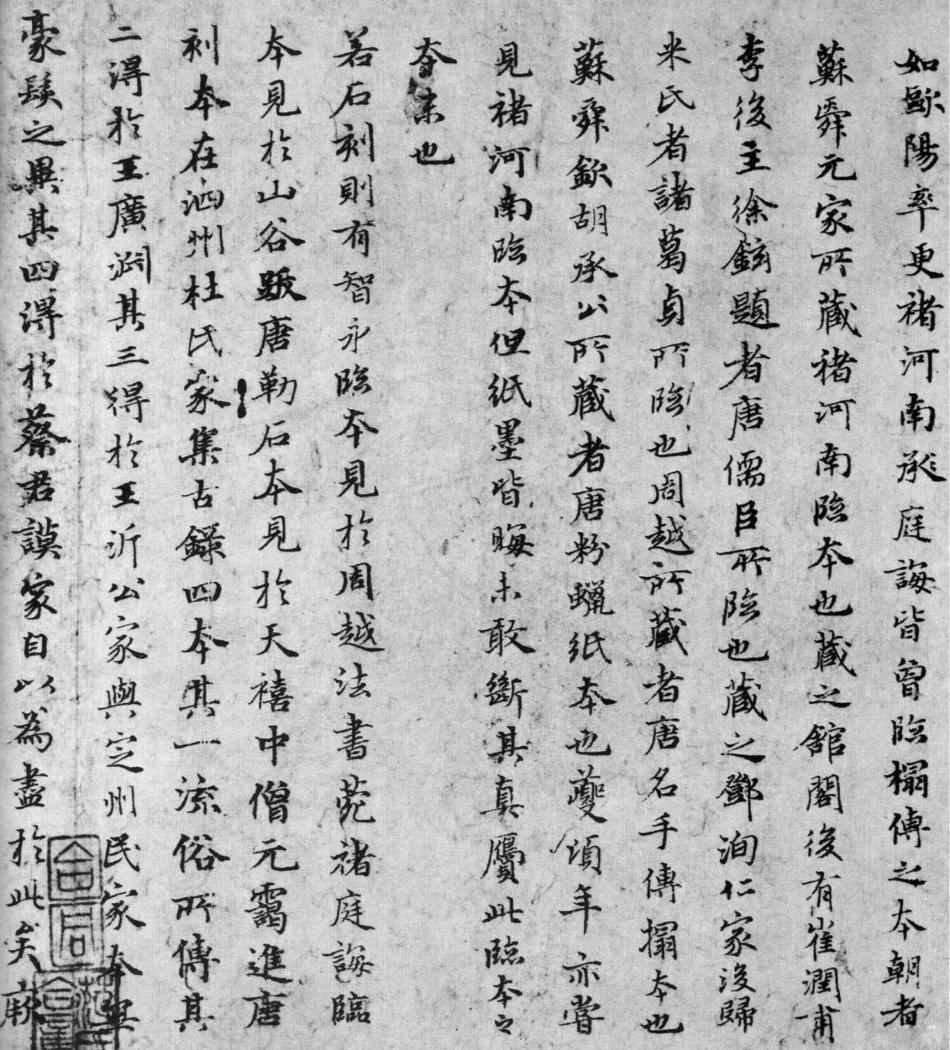 如歐陽率更褚河南承庭誨皆曾臨搨傳之本朝者
蘇舜元家所藏褚河南臨本也藏之館閣後有崔潤甫
李後主徐鉉題者唐儒臣所臨也藏之鄧洵仁家後歸
米氏者諸葛貞所臨也周越所藏者唐名手傳搨本也
蘇舜欽胡承公所藏者唐粉蠟紙本也夔頃年亦嘗
見褚河南臨本但紙墨皆晦未敢斷其真贗此臨本之
夲末也
若石刻則有智永臨本見於周越法書苑褚庭誨臨
本見於山谷跋唐勒石本見於天禧中僧元靄進唐
刻本在泗州杜氏家集古錄四本其一流俗所傳其
二得於王廣淵其三得於王沂公家與定州民家本無
豪髮之異其四得於蔡君謨家自以為盡於此矣